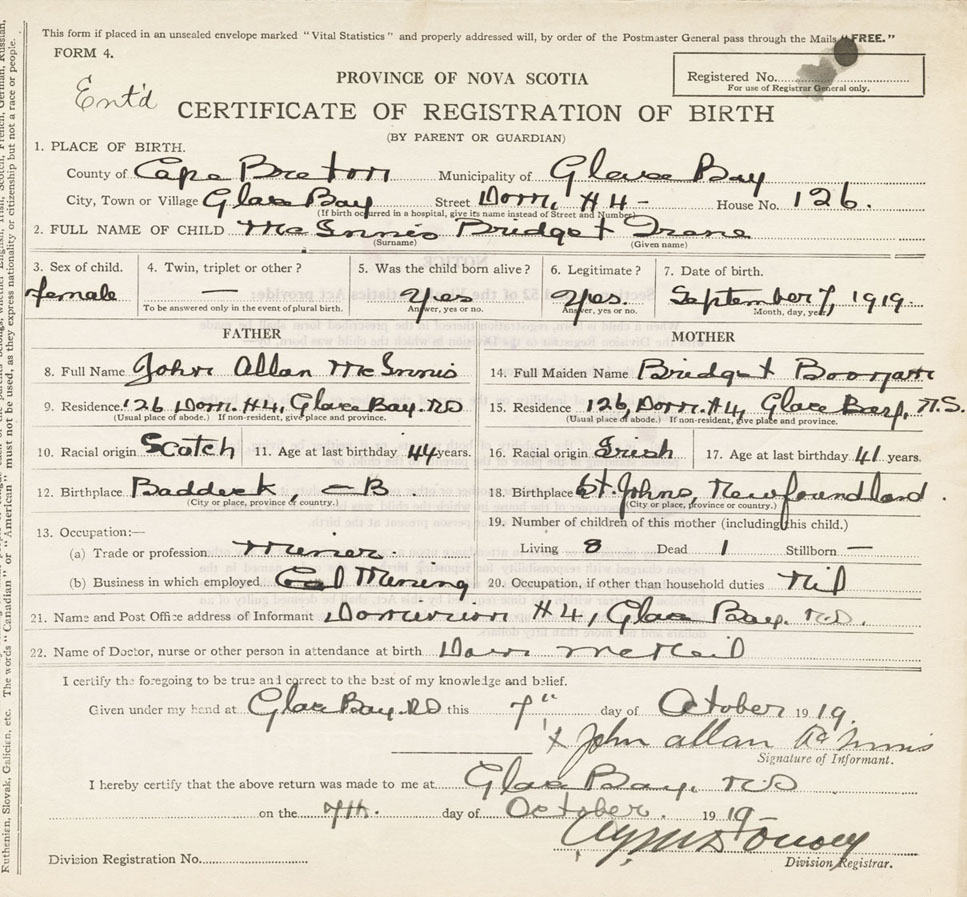 This form if placed in an unsealed envelope marked "Vital Statistics" and properly addressed will, by order of the Postmaster General pass through the Mails "FREE."
FORM 4.
Ent'd
PROVINCE OF NOVA SCOTIA
Registered No.
For use of Registrar General only.
CERTIFICATE OF REGISTRATION OF BIRTH
(BY PARENT OR GUARDIAN)
1. PLACE OF BIRTH.
County of Cape Breton Municipality of Glace Bay
City, Town or Village Glace Bay Street Dom. #4 - House No. 126.
(If birth occurred in a hospital, give its name instead of Street and Number)
2. FULL NAME OF CHILD McInnis Bridget Irene
(Surname) (Given name)
3. Sex of child. 4. Twin, triplet or other? 5. Was the child born alive? 6. Legitimate? 7. Date of birth.
female — Yes Yes. September 7, 1919.
To be answered only in the event of plural birth. Answer, yes or no. Answer, yes or no. Month, day, year,
FATHER MOTHER
8. Full Name John Allan McInnis 14. Full Maiden Name Bridget
9. Residence 126 Dom. #4, Glace Bay. NS 15. Residence 126, Dom. #4, Glace Bay, N.S.
(Usual place of abode.) If non-resident, give place and province. (Usual place of abode.) If non-resident, give place and province.
10. Racial origin Scotch 11. Age at last birthday 44 years. 16. Racial origin Irish 17. Age at last birthday 41 years.
12. Birthplace Baddeck, C B 18. Birthplace St. Johns, Newfoundland.
(City or place, province or country.) (City or place, province or country.)
13. Occupation:— 19. Number of children of this mother (including this child.)
(a) Trade or profession Miner. Living 8 Dead 1 Stillborn —
(b) Business in which employed Coal Mining 20. Occupation, if other than household duties Nil
21. Name and Post Office address of Informant Dominion #4, Glace Bay. NS.
22. Name of Doctor, nurse or other person in attendance at birth McNeil
I certify the foregoing to be true and correct to the best of my knowledge and belief.
Given under my hand at Glace Bay. NS this 7" day of October 1919.
x John Allan McInnis
Signature of Informant.
I hereby certify that the above return was made to me at Glace Bay, NS
on the 7th. day of October. 1919
Division Registration No.
Division Registrar.
Ruthenian, Slovak, Galician, etc. The words "Canadian" or "American" must not be used, as they express nationality or citizenship but not a race or people.